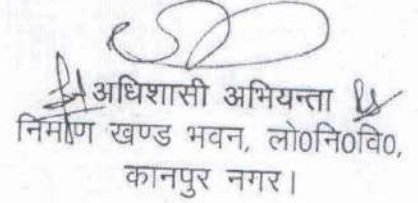 अधिशासी अभियन्ता
निर्माण खण्ड भवन, लो0नि0वि0,
कानपुर नगर।